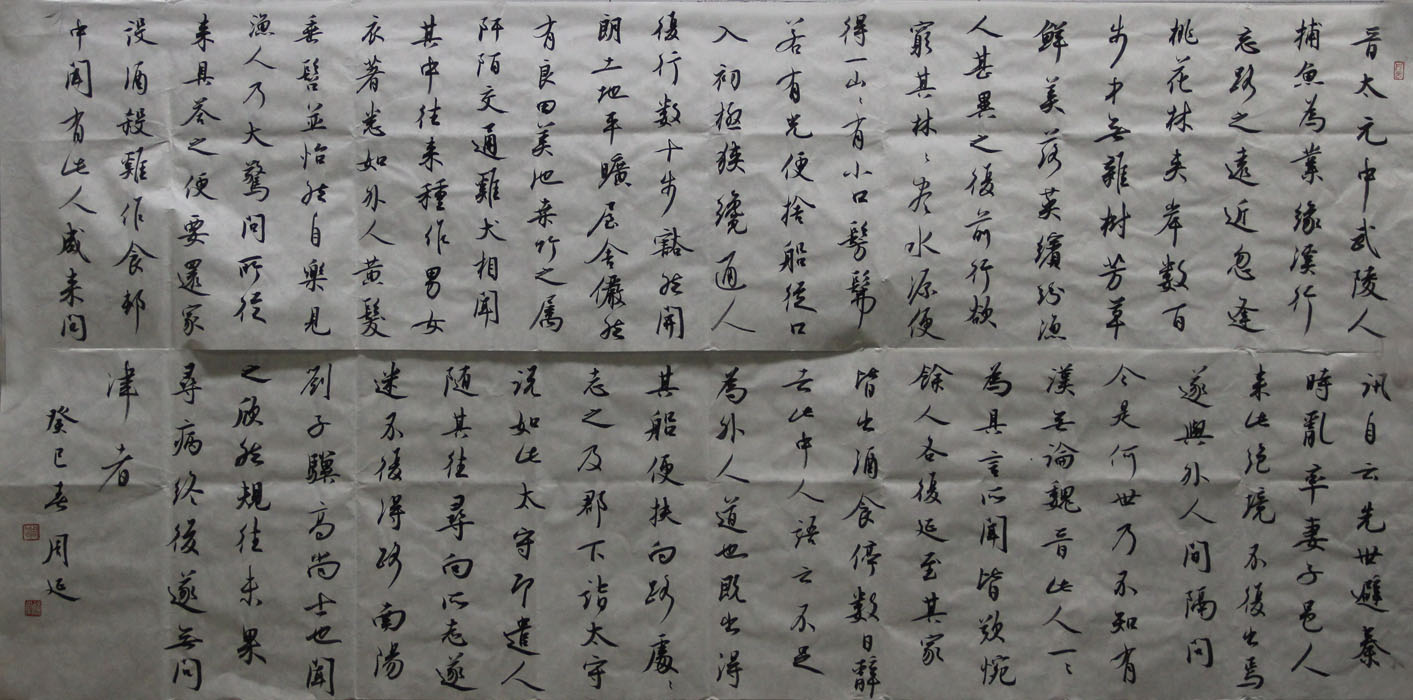 晉太元中武陵人
捕魚為業緣溪行
忘路之遠近忽逢
桃花林夾岸數百
步中無雜樹芳草
鮮美落英繽紛漁
人甚異之復前行欲
窮其林〻盡水源便
得一山〻有小口髣髴
若有光便捨船從口
入初極狹纔通人
復行數十步豁然開
朗土地平曠屋舍儼然
有良田美池桑竹之属
阡陌交通雞犬相聞
其中往來種作男女
衣著悉如外人黃髮
垂髫並怡然自樂見
漁人乃大驚問所從
来具答之便要還家
設酒殺雞作食邨
中聞有此人咸来問
訊自云先世避秦
時亂率妻子邑人
来此絕境不復出焉
遂與外人間隔問
今是何世乃不知有
漢無論魏晉此人一〻
為具言所聞皆歎惋
餘人各復延至其家
皆出酒食停数日辭
去此中人語云不足
為外人道也既出得
其船便扶向路處〻
志之及郡下詣太守
說如此太守即遣人
随其往尋向所志遂
迷不復得路南陽
劉子驥高尚士也聞
之欣然規往未果
尋病終後遂無問
津者
癸巳春周延